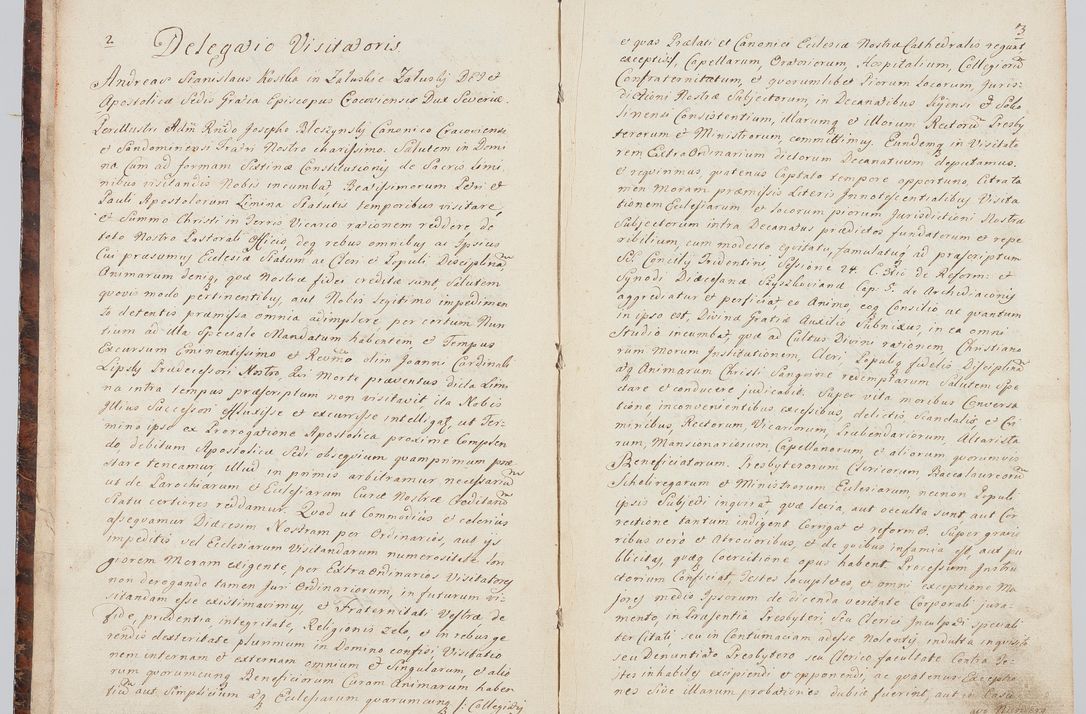 2
Delegatio Visitatoris.
Andreas Stanislaus Kostka in Zaluskie Zaluski DEI et
Apostolicæ Sedis Gratia Episcopus Cracoviensis Dux Severiæ.
Perillustri Adm Rndo Josepho Bleszynski Canonico Cracoviensi
et Sandomiriensi Fratri Nostro charissimo. Salutem in Domi
no. Cum ad formam Sixtinæ Constitutionis de Sacris Limi
nibus visitandis Nobis incumbat Beatissimorum Petri et
Pauli Apostolorum Limina Statutis temporibus visitare,
et Summo Christi in Terris Vicario rationem reddere, de
toto Nostro Pastorali Officio, deq rebus omnibus ac Ipsius
Cui præsumus Ecclesiæ Statum ac Cleri et Populi Disciplinā
Animarum deniq, quæ Nostræ fidei creditæ sunt, Salutem
quovis modo pertinentibus, aut Nobis legitimo impedimen
to detentis præmissa omnia adimplere, per certum Nun
tium ad illa Speciale Mandatum habentem et Tempus
Excursum Eminentissimo et Revmo olim Joanni Cardinali
Lipsky Prædecessori Nostro, Qui Morte præventus dicta Limi
na intra tempus præscriptum non visitavit ita Nobis
Illius Successori effluxisse et excurrisse intelligat, ut Ter-
mino ipso ex Prorogatione Apostolica proxime Complen
do, debitum Apostolicæ Sedi obsequium quamprimum præ
stare teneamur. Illud in primis arbitramur necessariū
ut de Parochiarum et Ecclesiarum Curæ Nostræ Creditarū
Statu certiores reddamur. Quod ut Commodius et celerius
assequamur Diæcesim Nostram per Ordinarios, aut ijs
impeditis vel Ecclesiarum Visitandarum numerositate lon
giorem Moram exigente, per ExtraOrdinarios Visitatores
non derogando tamen Juri Ordinariorum, in futurum vi-
sitandam esse existimavimus, et Fraternitati Vestræ de
fide, prudentia, integritate, Religionis zelo, et in rebus ge
rendis dexteritate plurimum in Domino confisi, Visitatio
nem internam et externam omnium et Singularum, et alio
rum quorumcunq Beneficiorum Curam Animarum haben
tiū aut Simplicium atq Ecclesiarum quarumcunq /: Collegiatis
3
et quas Prælati et Canonici Ecclesiæ Nostræ Cathedralis regunt
exceptis/, Capellarum, Oratoriorum, Hospitalium, Collegiorū
Confraternitatum, et quorumlibet Piorum Locorum, Juris-
dictioni Nostræ Subjectorum, in Decanatibus
Consistentium, illarumq et illorum Rectorum Presby
terorum et Ministrorum committimus. Eundemq in Visitato
rem ExtraOrdinarium dictorum Decanatuum deputamus.
et requirimus, quatenus Captato tempore opportuno, Citrata
men Moram præmissis Literis Innotescentialibus Visita
tionem Ecclesiarum et locorum piorum Jurisdictioni Nostræ
Subjectorum intra Decanatus prædictos fundatorum et repe
ribilium, cum modesto equitatu, famulatuq ad præscriptum
S: Concilij Tridentini Sessione 24. C: 3tio de Reform: et
Synodi Diæcesanæ Szyszkovianæ Cap: 5. de Archidiaconis
aggrediatur et perficiat eo Animo, eoq Consilio ut quantum
in ipso est, Divinæ Gratiæ Auxilio Subnixus, in ea omni
Studio incumbat, quæ ad Cultus Divini rationem, Christiano
rum Morum Institutionem, Cleri Populi fidelis Disciplinā
atq Animarum Christi Sanguine redemptarum Salutem Spe
ctare et conducere judicabit. Super vita moribus Conversa
tione, inconvenientibus excessibus, delictis, Scandalis, et Cri
minibus, Rectorum, Vicariorum, Præbendariorum, Altarista
rum, Mansionariorum, Capellanorum, et aliorum quorumvis
Beneficiatorum. Presbyterorum Clericorum Baccalaureorū
Scholiregarum et Ministrorum Ecclesiarum, necnon Populi
ipsis Subjecti inquirat, quæ levia, aut occulta sunt aut Cor
rectione tantum indigent, Corrigat et reformet. Super gravio
ribus vero et Atrocioribus, et de quibus infamia est, aut pu
blicitas, quæq Coercitione opus habent, Processum Instru
ctorium Conficiat, Testes locupletes et omni exceptione Ma
jores medio Ipsorum de dicenda veritate Corporali jura-
mento, in Præsentia Presbyteri seu Clerici Inculpati speciali
ter Citati seu in Contumaciam adesse Nolentis, indulta inquisito
seu Denuntiato Presbytero seu Clerico facultate Contra Te-
stes inhabiles excipiendi et opponendi, ac quatenus Exceptio
nes Sive illarum probationes dubiæ fuerint, aut in Casu